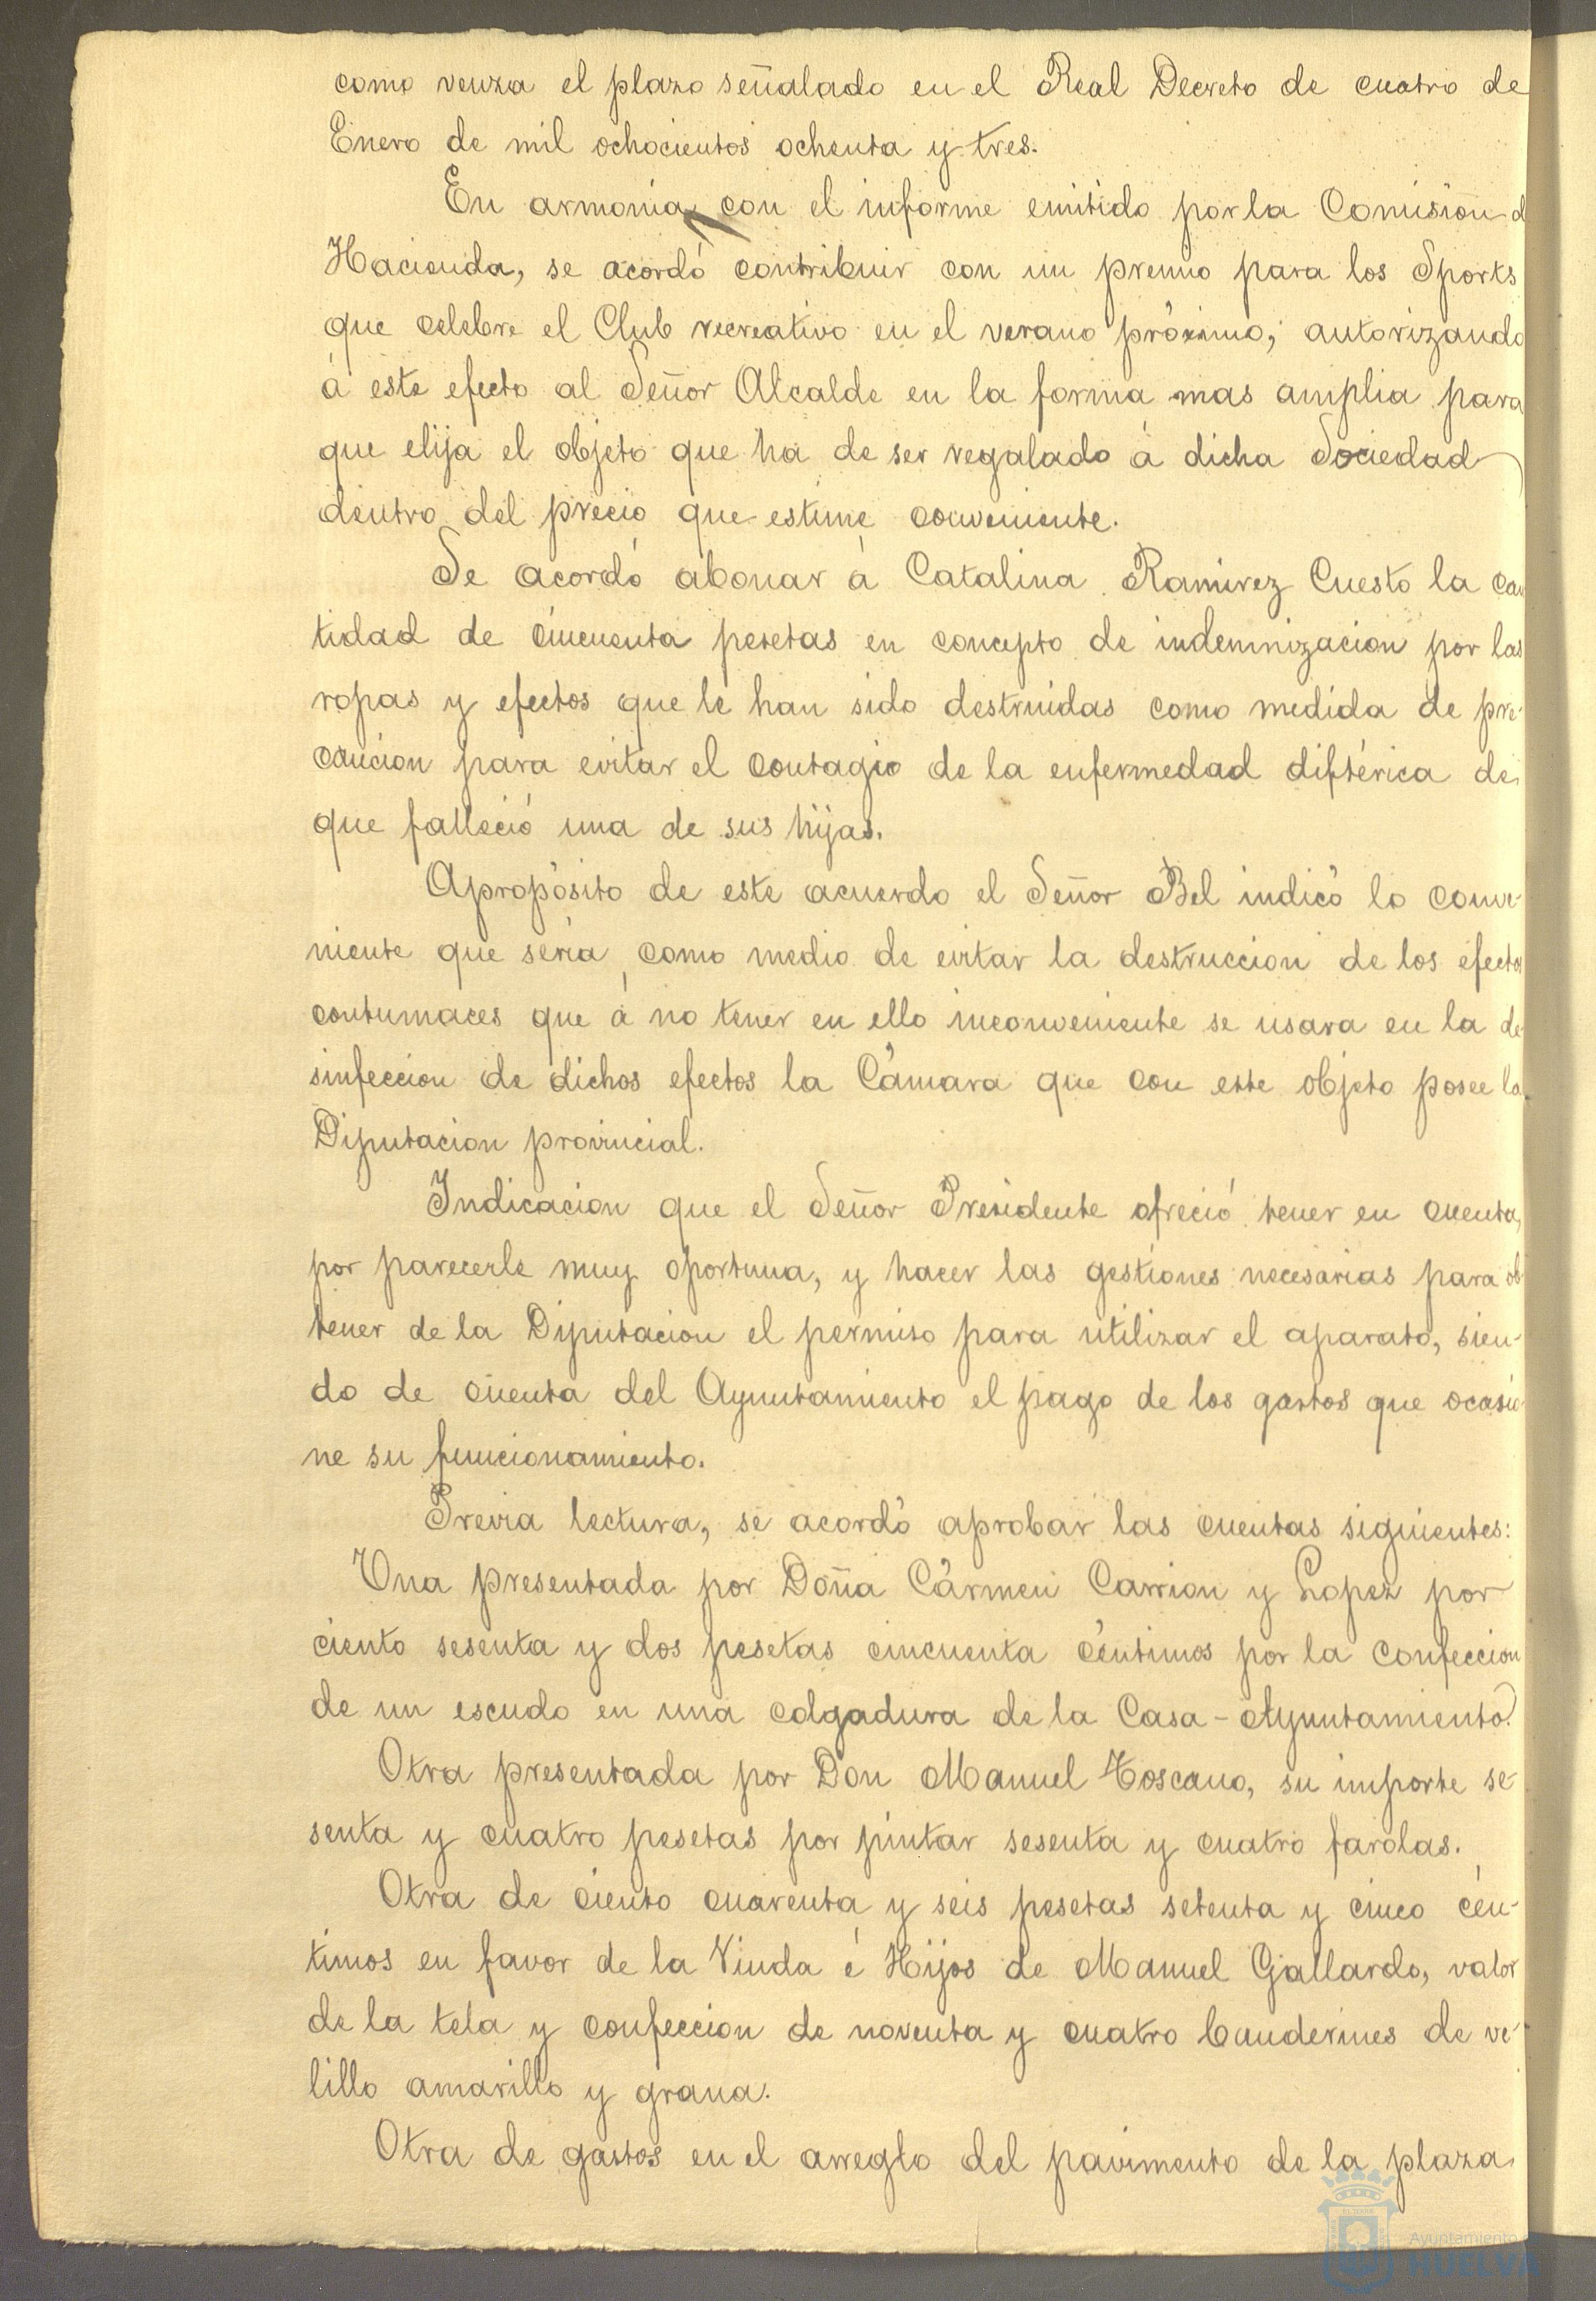 como venza el plazo señalado en el Real Decreto de cuatro de
Enero de mil ochocientos ochenta y tres.
En armonia con el informe emitido por la Comision d
Hacienda, se acordó contribuir con un premio para los Sports
que celebre el Club recreativo en el verano próximo, autorizando
á este efecto al Señor Alcalde en la forma mas amplia para
que elija el objeto que ha de ser regalado á dicha Sociedad
dentro del precio que estime conveniente.
Se acordó abonar á Catalina Ramirez Cuesto la can
tidad de cincuenta pesetas en concepto de indemnizacion por las
ropas y efectos que le han sido destruidas como medida de pre-
caucion para evitar el contagio de la enfermedad diftérica de
que falleció una de sus hijas.
Apropósito de este acuerdo el Señor Bel indicó lo conve-
niente que seria, como medio de evitar la destruccion de los efectos
contumaces que á no tener en ello inconveniente se usara en la de
sinfeccion de dichos efectos la Cámara que con este objeto posee la
Diputacion provincial.
Indicacion que el Señor Presidente ofreció tener en cuenta,
por parecerle muy oportuna, y hacer las gestiones necesarias para ob
tener de la Diputacion el permiso para utilizar el aparato, sien-
do de cuenta del Ayuntamiento el pago de los gastos que ocasio
ne su funcionamiento.
Previa lectura, se acordó aprobar las cuentas siguientes:
Una presentada por Doña Cármen Carrion y Lopez por
ciento sesenta y dos pesetas cincuenta céntimos por la confeccion
de un escudo en una colgadura de la Casa-Ayuntamiento.
Otra presentada por Don Manuel Toscano, su importe se-
senta y cuatro pesetas por pintar sesenta y cuatro farolas.
Otra de ciento cuarenta y seis pesetas setenta y cinco cén-
timos en favor de la Viuda é Hijos de Manuel Gallardo, valor
de la tela y confeccion de noventa y cuatro banderines de ve-
lillo amarillo y grana.
Otra de gastos en el arreglo del pavimento de la plaza
Ayuntamiento
HUELVA